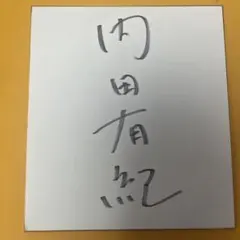 内田有紀